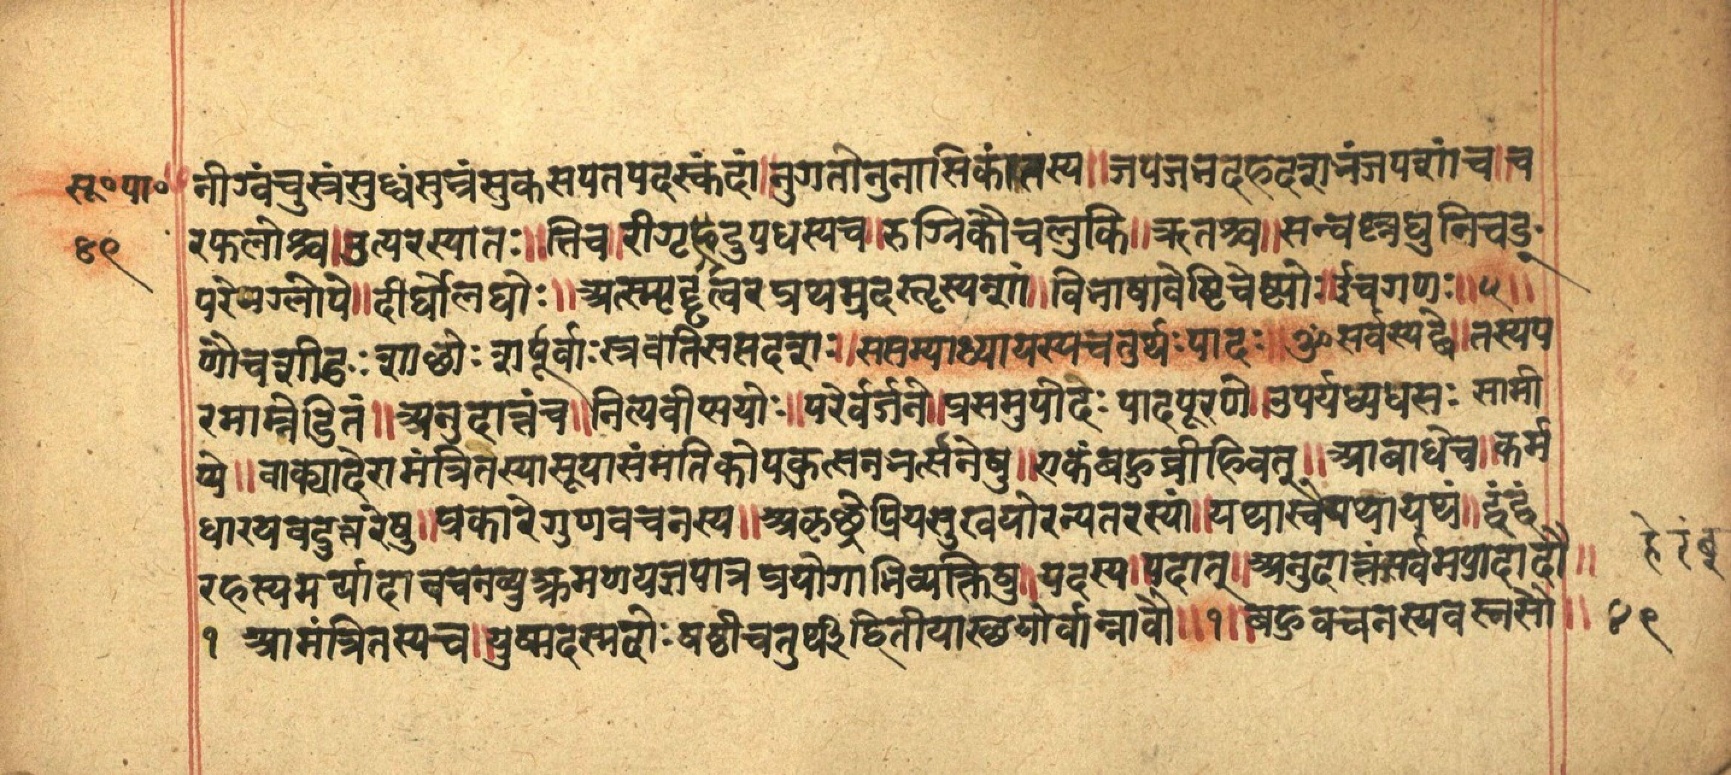 सू०पा० नीग्वंचुस्त्रंसुध्वंसुभ्रंसुकसपतपदस्कंदां॥नुगतोनुनासिकांतस्य॥जपजभदहदशभंजपशांच॥च
४९ रफलोश्च॥उत्परस्यातः॥तिच॥रीगृदुपधस्यच॥रुग्रिकौचलुकि॥ऋतश्च॥सन्वल्लघुनिचङ्
परेनग्लोपे॥दीर्घोलघोः॥अत्स्मृदॄत्वरप्रथम्रदस्तृस्पशां॥विभाषावेष्टिचेष्ट्योः॥ईचगणः॥५॥
णौचशीङः शाछोः शॄपूर्वाः स्त्रवतिसप्तदश॥सप्तम्याध्यायस्यचतुर्थःपादः॥ॐसर्वस्यद्वे॥तस्यप
रमाम्रेडितं॥अनुदात्तंच॥नित्यवीप्सयोः॥परेर्वर्जने॥प्रसमुपोदः पादपूरणे॥उपर्यध्यधसः सामी
प्ये॥वाक्यादेरामंत्रितस्यासूयासंमतिकोपकुत्सनभर्त्सनेषु॥एकंबहुव्रीहिवत्॥आबाधेच॥कर्म
धारयवदुत्तरेषु॥प्रकारेगुणवचनस्य॥अकृच्छ्रेप्रियसुखयोरन्यतरस्यां॥यथास्वेयथायथं॥द्वंद्वं
रहस्यमर्यादावचनव्युत्क्रमणयज्ञपात्रप्रयोगाभिव्यक्तिषु॥पदस्य॥पदात्॥अनुदात्तंसर्वमपादादौ॥ हेरंबू
१ आमंत्रितस्यच॥युष्मदस्मदोः षष्ठीचतुर्थीद्वितीयास्थयोर्वान्नावौ॥१॥बहुवचनस्यवस्नसौ॥ ४९